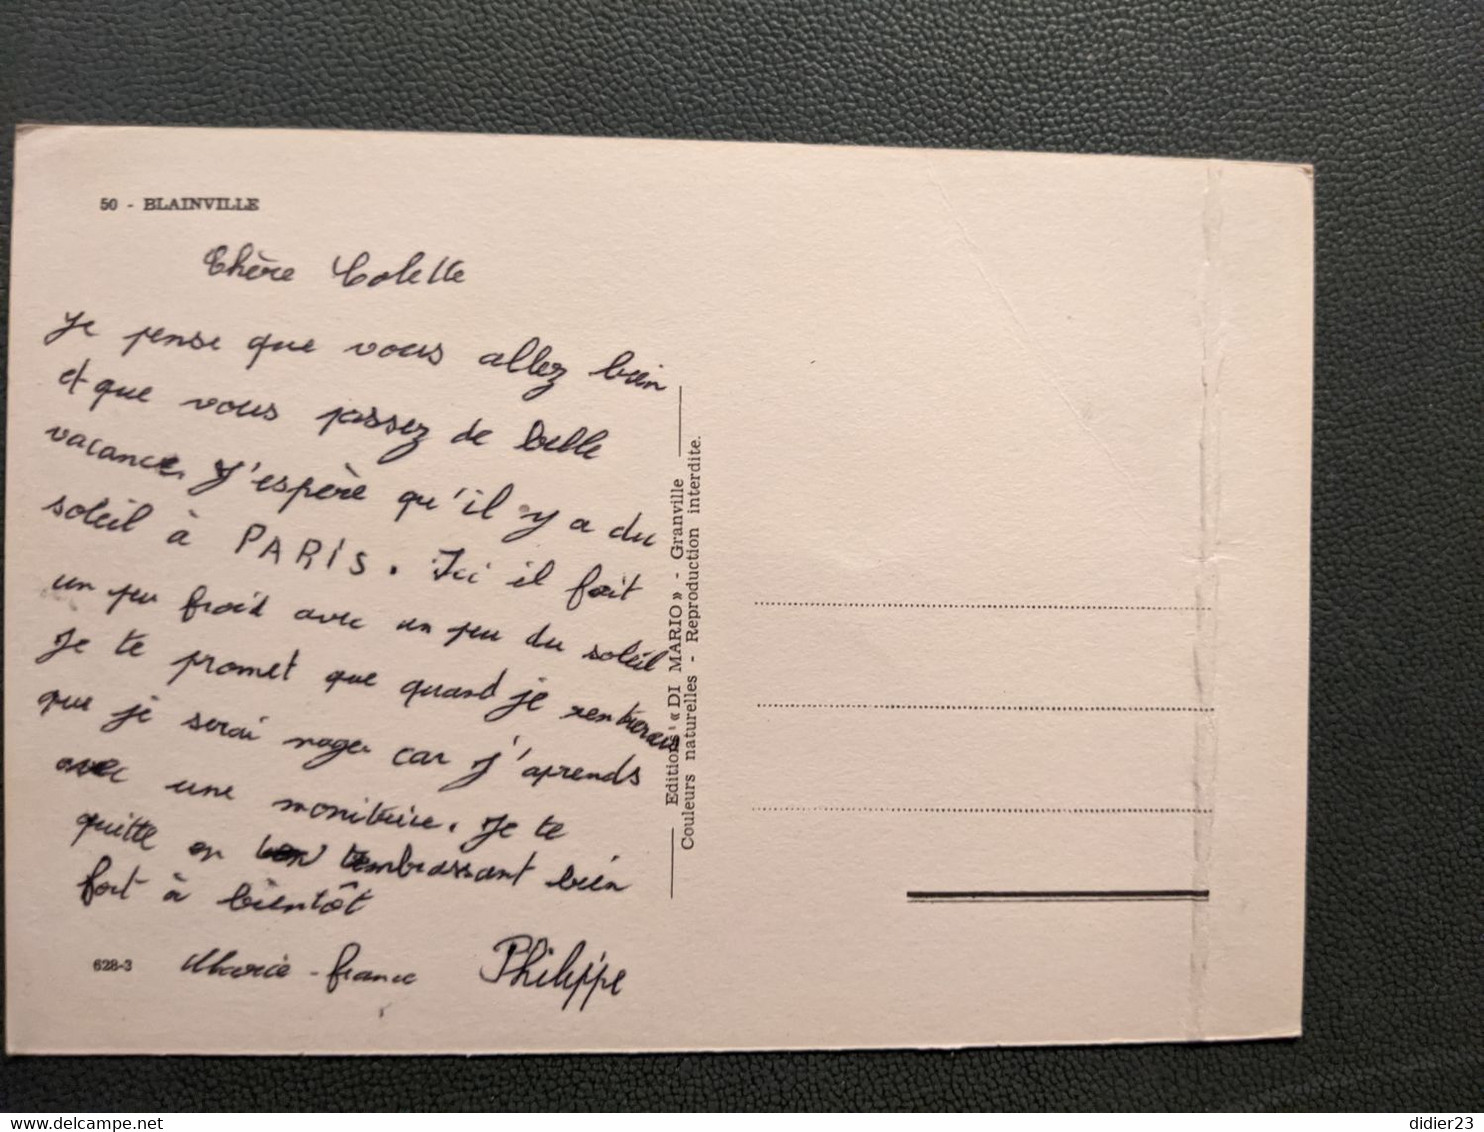 50 - BLAINVILLE
Chère Colette
Je pense que vous allez bien
et que vous passez de belle
vacance. J'espère qu'il y a du
soleil à PARIS. Ici il fait
un peu froid avec un peu du soleil
Je te promet que quand je rentrerais
que je serai nager car j'aprends
avec une monitrice. Je te
quitte en t'embrassant bien
fort à bientôt
628-3 Marie-france Philippe
Editions «DI MARIO» - Granville
Couleurs naturelles - Reproduction interdite.
didier23